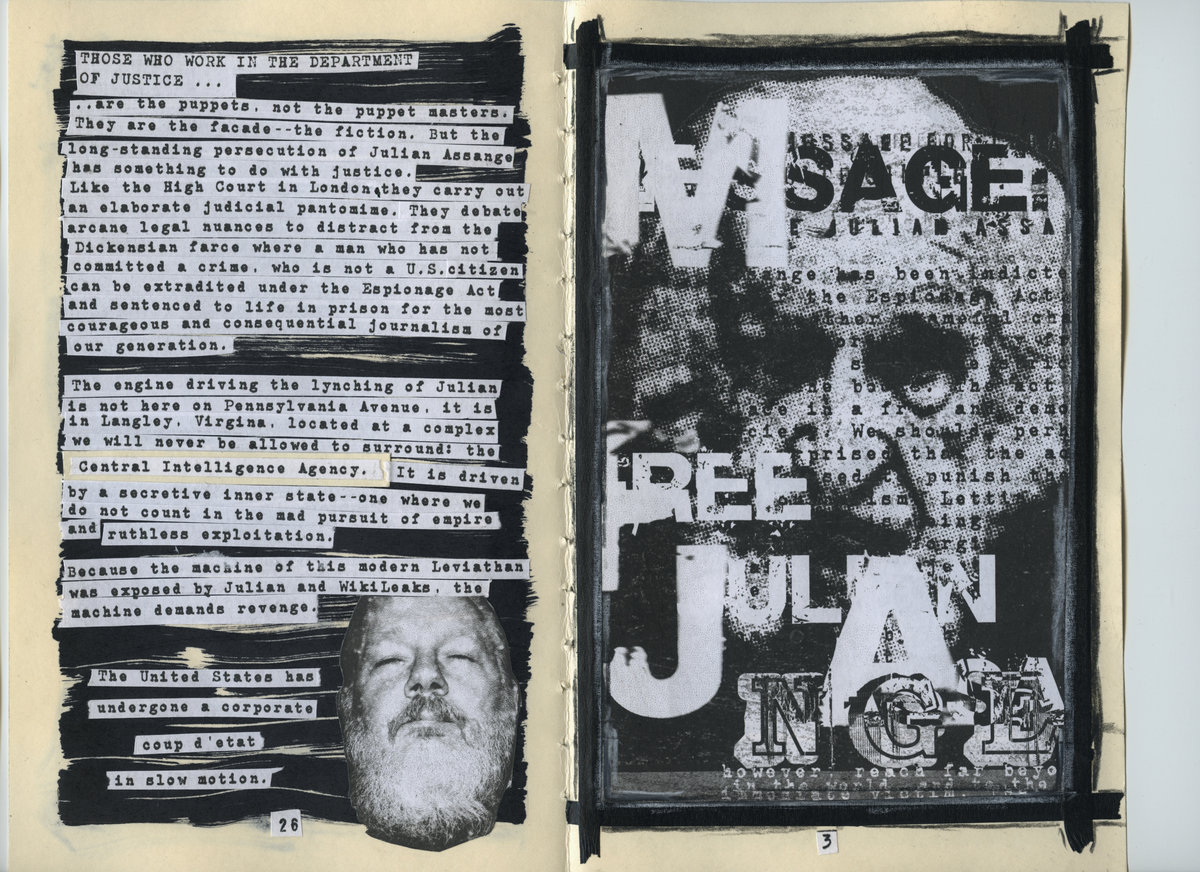 THOSE WHO WORK IN THE DEPARTMENT
OF JUSTICE ...
..are the puppets, not the puppet masters.
They are the facade--the fiction. But the
long-standing persecution of Julian Assange
has something to do with justice.
Like the High Court in London, they carry out
an elaborate judicial pantomime. They debate
arcane legal nuances to distract from the
Dickensian farce where a man who has not
committed a crime, who is not a U.S.citizen
can be extradited under the Espionage Act
and sentenced to life in prison for the most
courageous and consequential journalism of
our generation.
The engine driving the lynching of Julian
is not here on Pennsylvania Avenue, it is
in Langley, Virgina, located at a complex
we will never be allowed to surround: the
Central Intelligence Agency. It is driven
by a secretive inner state--one where we
do not count in the mad pursuit of empire
and ruthless exploitation.
Because the machine of this modern Leviathan
was exposed by Julian and WikiLeaks, the
machine demands revenge.
The United States has
undergone a corporate
coup d'etat
in slow motion.
26
MESSAGE
JULIAN ASSA
ange has been indicte
the Espionage Act
We should
punish
FREE
JULIAN
A
NGE
however, reach far beyo
in the world are to the
3